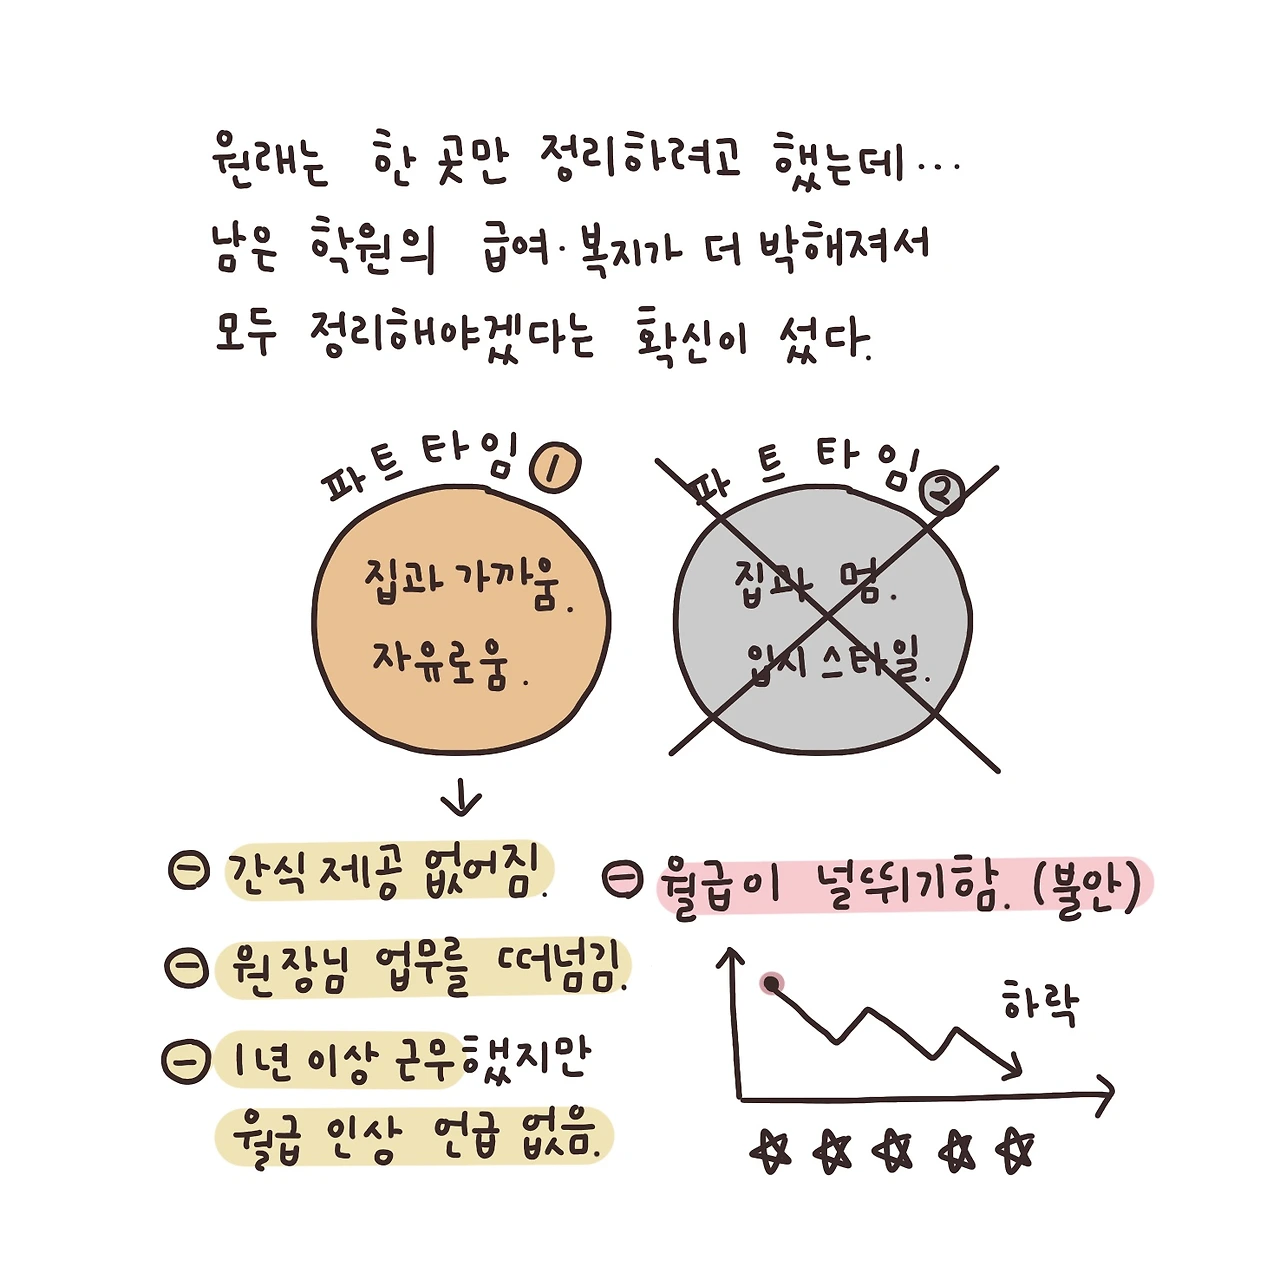 원래는 한 곳만 정리하려고 했는데...
남은 학원의 급여·복지가 더 박해져서
모두 정리해야겠다는 확신이 섰다.
파트타임 ①
집과 가까움.
자유로움.
파트타임 ②
집과 멈.
입시 스타일.
⊖ 간식 제공 없어짐.
⊖ 원장님 업무를 떠넘김.
⊖ 1년 이상 근무했지만
월급 인상 언급 없음.
⊖ 월급이 널뛰기함. (불안)
하락